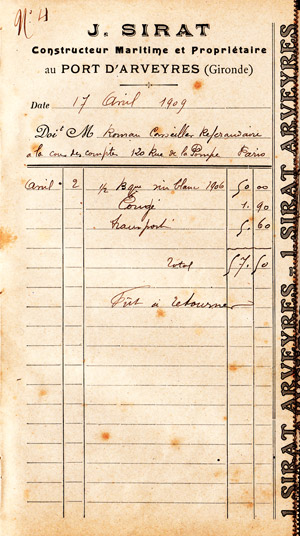 Nº 4
J. SIRAT
Constructeur Maritime et Propriétaire
au PORT D'ARVEYRES (Gironde)
Date 17 Avril 1909
Doit M Roman Conseiller Referendaire
a la cour des comptes 120 Rue de la Pompe Paris
Avril 2 ½ Bque vin blanc 1906 50 00
Congé 1. 90
transport 5. 60
Total 57. 50
Fût à retourner
J. SIRAT ARVEYRES - J. SIRAT ARVEYRES